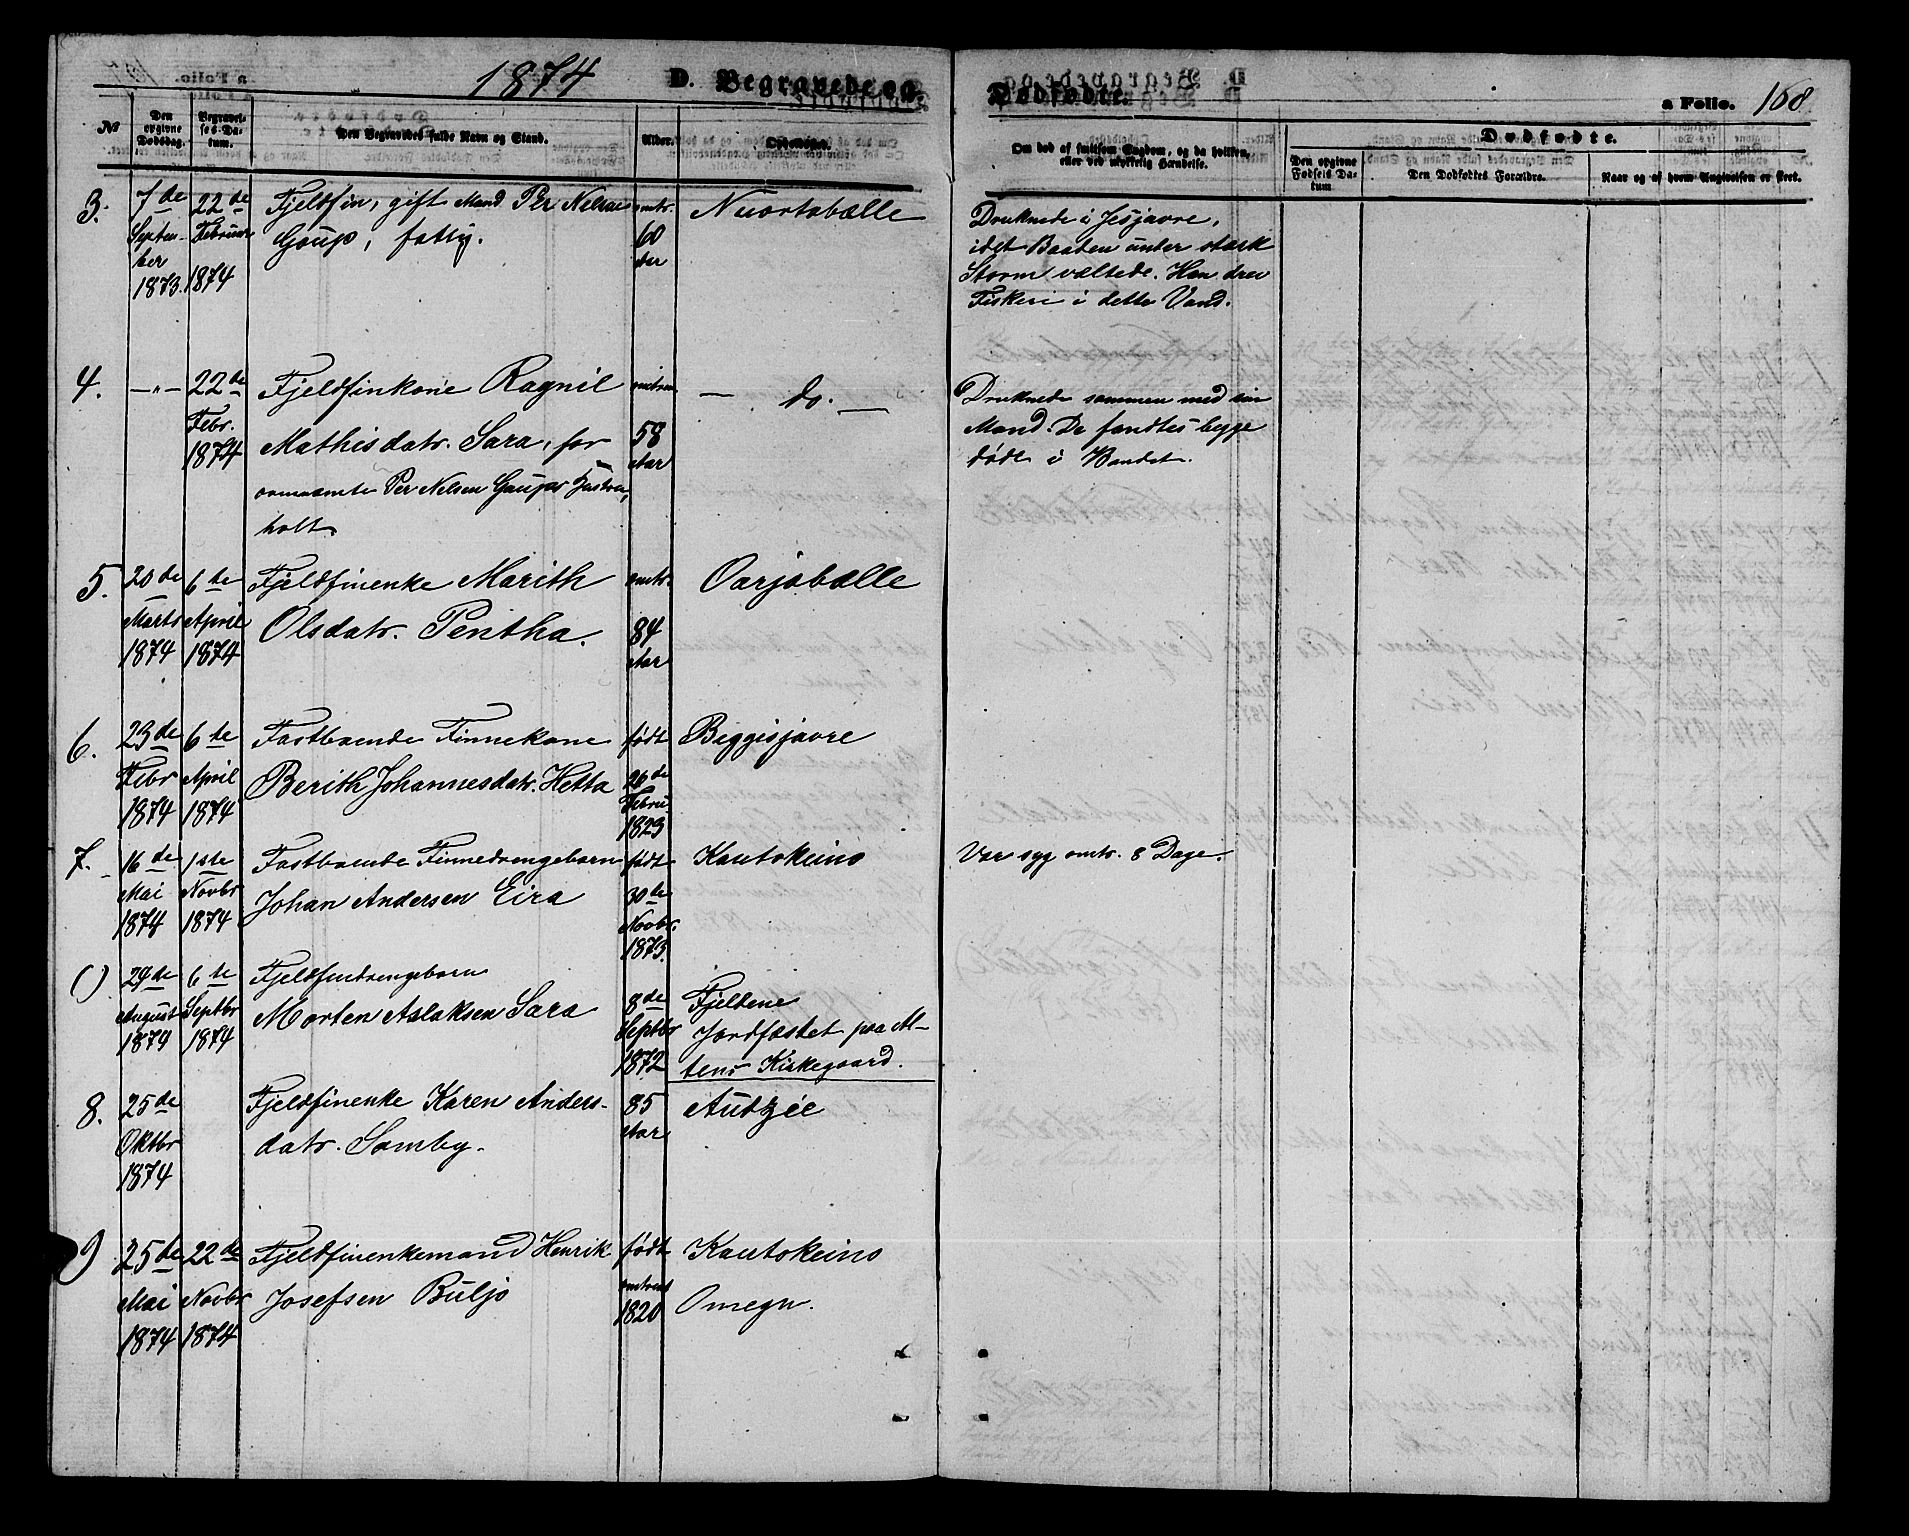 1874
D. Begravede og Dødfødte.
a Folio. 168
№
Den opgivne Dødsdag.
Begravelses-Datum.
Den Begravedes fulde Navn og Stand.
Alder.
Opholdssted.
Om død af smitsom Sygdom, og da hvilken, eller ved ulykkelig Hændelse.
Dødfødte.
Den opgivne Fødsels Datum
Den Dødfødtes Forældre.
Naar og af hvem Angivelsen er skeet.
3.
7de
Septem-
ber
1873.
22de
Februar
1874
Fjeldfin, gift Mand Per Nelsen
Gaup, fattig.
omtr.
60
Aar
Nuortabælle
Druknede i Jesjavre,
idet Baaden under stærk
Storm væltede. Han drev
Fiskeri i dette Vand.
4.
—"—
22de
Febr.
1874
Fjeldfinkone Ragnil
Mathisdatr. Sara, for
ommeldte Per Nelsen Gaups
holt.
omtren
58
Aar
— do. —
Druknede sammen med sin
Mand. De fandtes begge
døde i Vandet.
5.
20de
Marts
1874
6te
April
1874
Fjeldfinenke Marith
Olsdatr. Pentha.
omtr.
84
Aar
Oarjabælle
6.
23de
Febr
1874
6te
April
1874
Fastboende Finnekone
Berith Johannesdatr. Hetta
født
26de
Febru
1823
Beggisjavre
7.
16de
Mai
1874
1ste
Novbr
1874
Fastboende Finnedrengebarn
Johan Andersen Eira
født
30de
Novbr.
1873.
Kautokeino
Var syg omtr. 8 Dage.
()
29de
August
1874
6te
Septbr
1874
Fjeldfindrengebarn
Morten Aslaksen Sara
8de
Septbr
1872
Fjeldene
Jordfæstet paa Al-
tens Kirkegaard.
8.
25de
Oktbr
1874
Fjeldfinenke Karen Anders-
datr. Somby.
85
Aar
Autzée
9
25de
Mai
1874
22de
Novbr
1874
Fjeldfinenkemand Henrik
Josefsen Buljo
født
omtrent
1820
Kautokeino
Omegn.